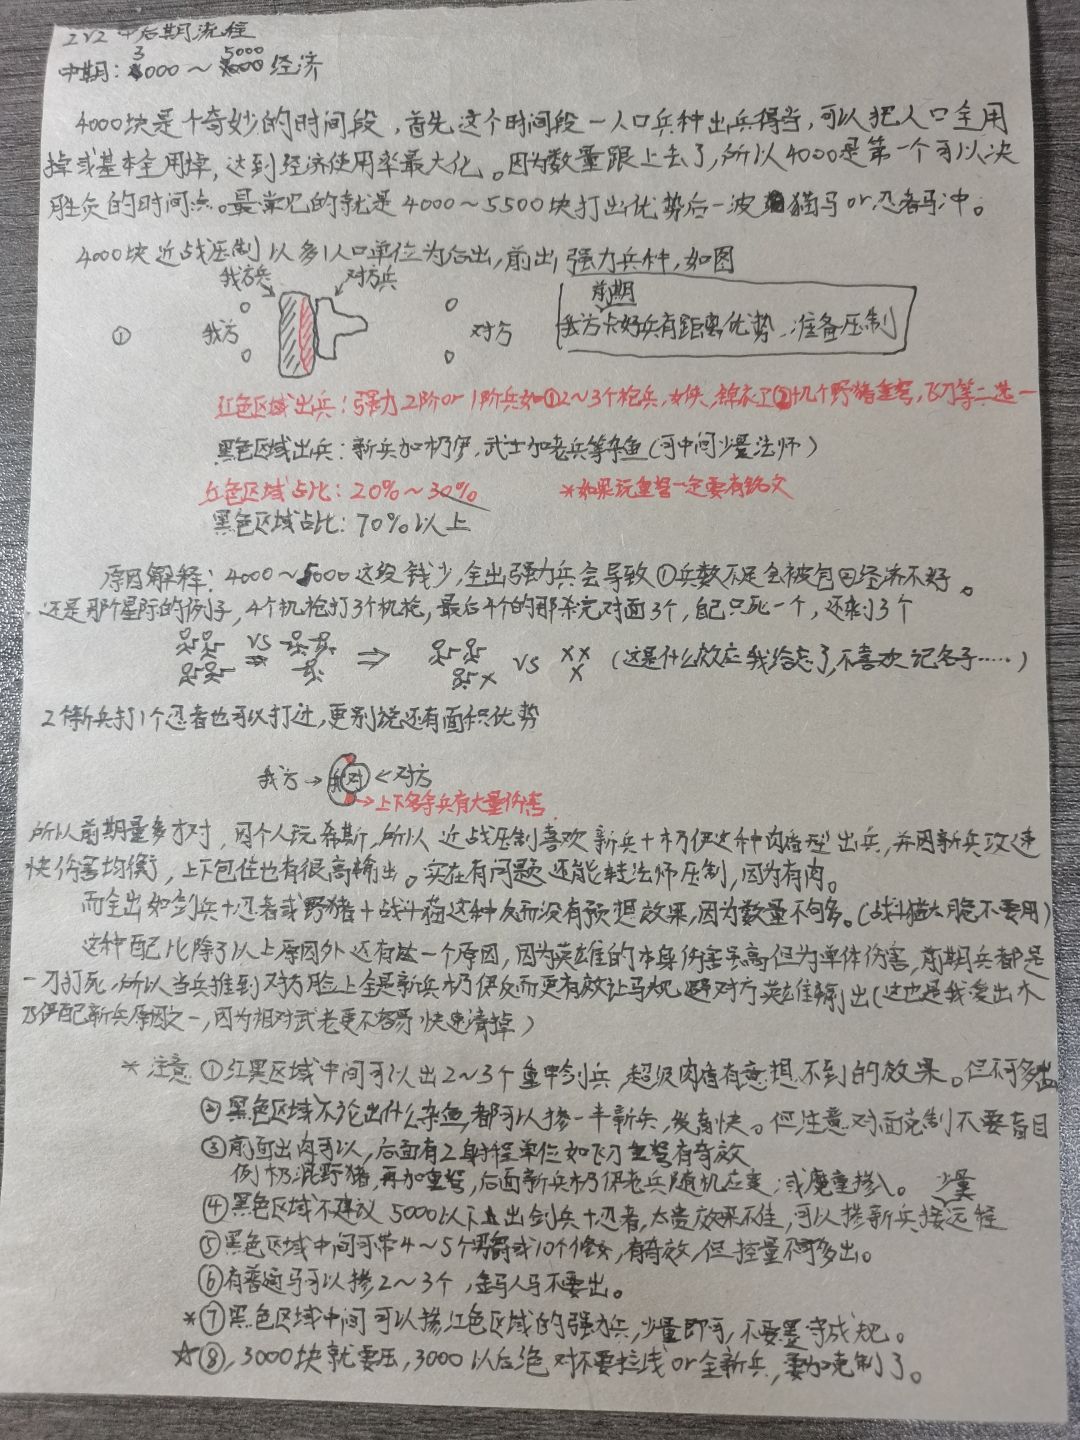 2V2中后期流程
中期：3000～5000经济
4000块是个奇妙的时间段，首先这个时间段一人口兵种出兵得当，可以把人口全用
掉或基本全用掉，达到经济使用率最大化。因为数量跟上去了，所以4000是第一个可以决
胜负的时间点。最常见的就是4000～5500块打出优势后一波猫马or忍者马冲。
4000块近战压制以多1人口单位为后出，前出强力兵种，如图
我方兵
对方兵
前期
①
我方
对方
我方卡好兵有距离优势，准备压制
红色区域出兵：强力2阶or1阶兵如①2～3个枪兵，女侠，锦衣卫②十几个野猪重弩，飞刀等二选一
黑色区域出兵：新兵加木乃伊，武士加老兵等杂鱼（可中间少量法师）
红色区域占比：20%～30%
*如果玩重弩一定要有铭文
黑色区域占比：70%以上
原因解释：4000～5000这段钱少，全出强力兵会导致①兵数不足会被包②经济不好。
还是那个星际的例子，4个机枪打3个机枪，最后4个的那杀完对面3个，自己只死一个，还剩3个
VS
VS
（这是什么效应我给忘了，不喜欢记名字……）
2倍新兵打1个忍者也可以打过，更别说还有面积优势
我方→
我对
←对方
→上下多余兵有大量伤害
所以前期量多才对，因个人玩希斯，所以近战压制喜欢新兵+木乃伊这种肉盾型出兵，并因新兵攻速
快伤害均衡，上下包住也有很高输出。实在有问题还能转法师压制，因为有肉。
而全出如剑兵+忍者或野猪+战斗猫这种反而没有预想效果，因为数量不够多。（战斗猫太脆不要用）
这种配比除了以上原因外还有一个原因，因为英雄的本身伤害虽高但为单体伤害，前期兵都是
一刀打死，所以当兵推到对方脸上全是新兵木乃伊反而更有效让马规避对方英雄输出（这也是我爱出木
乃伊配新兵原因之一，因为相对武老更不容易快速清掉）
*注意①红黑区域中间可以出2～3个重甲剑兵，超级肉盾有意想不到的效果。但不可多出
②黑色区域不论出什么杂鱼，都可以掺一半新兵，发育快。但注意对面克制不要盲目
③前面出肉可以，后面有2射程单位如飞刀重弩有奇效
例木乃混野猪，再加重弩，后面新兵木乃伊老兵随机应变，或魔童掺入。
少量
④黑色区域不建议5000以下出剑兵+忍者，太贵效果不佳，可以掺新兵接远程
⑤黑色区域中间可带4～5个或10个修女，有奇效，但控量不可多出。
⑥有普通马可以掺2～3个，金马人马不要出。
*⑦黑色区域中间可以掺红色区域的强力兵，少量即可，不要墨守成规。
☆⑧，3000块就要压，3000以后绝对不要拉线or全新兵，要加克制了。